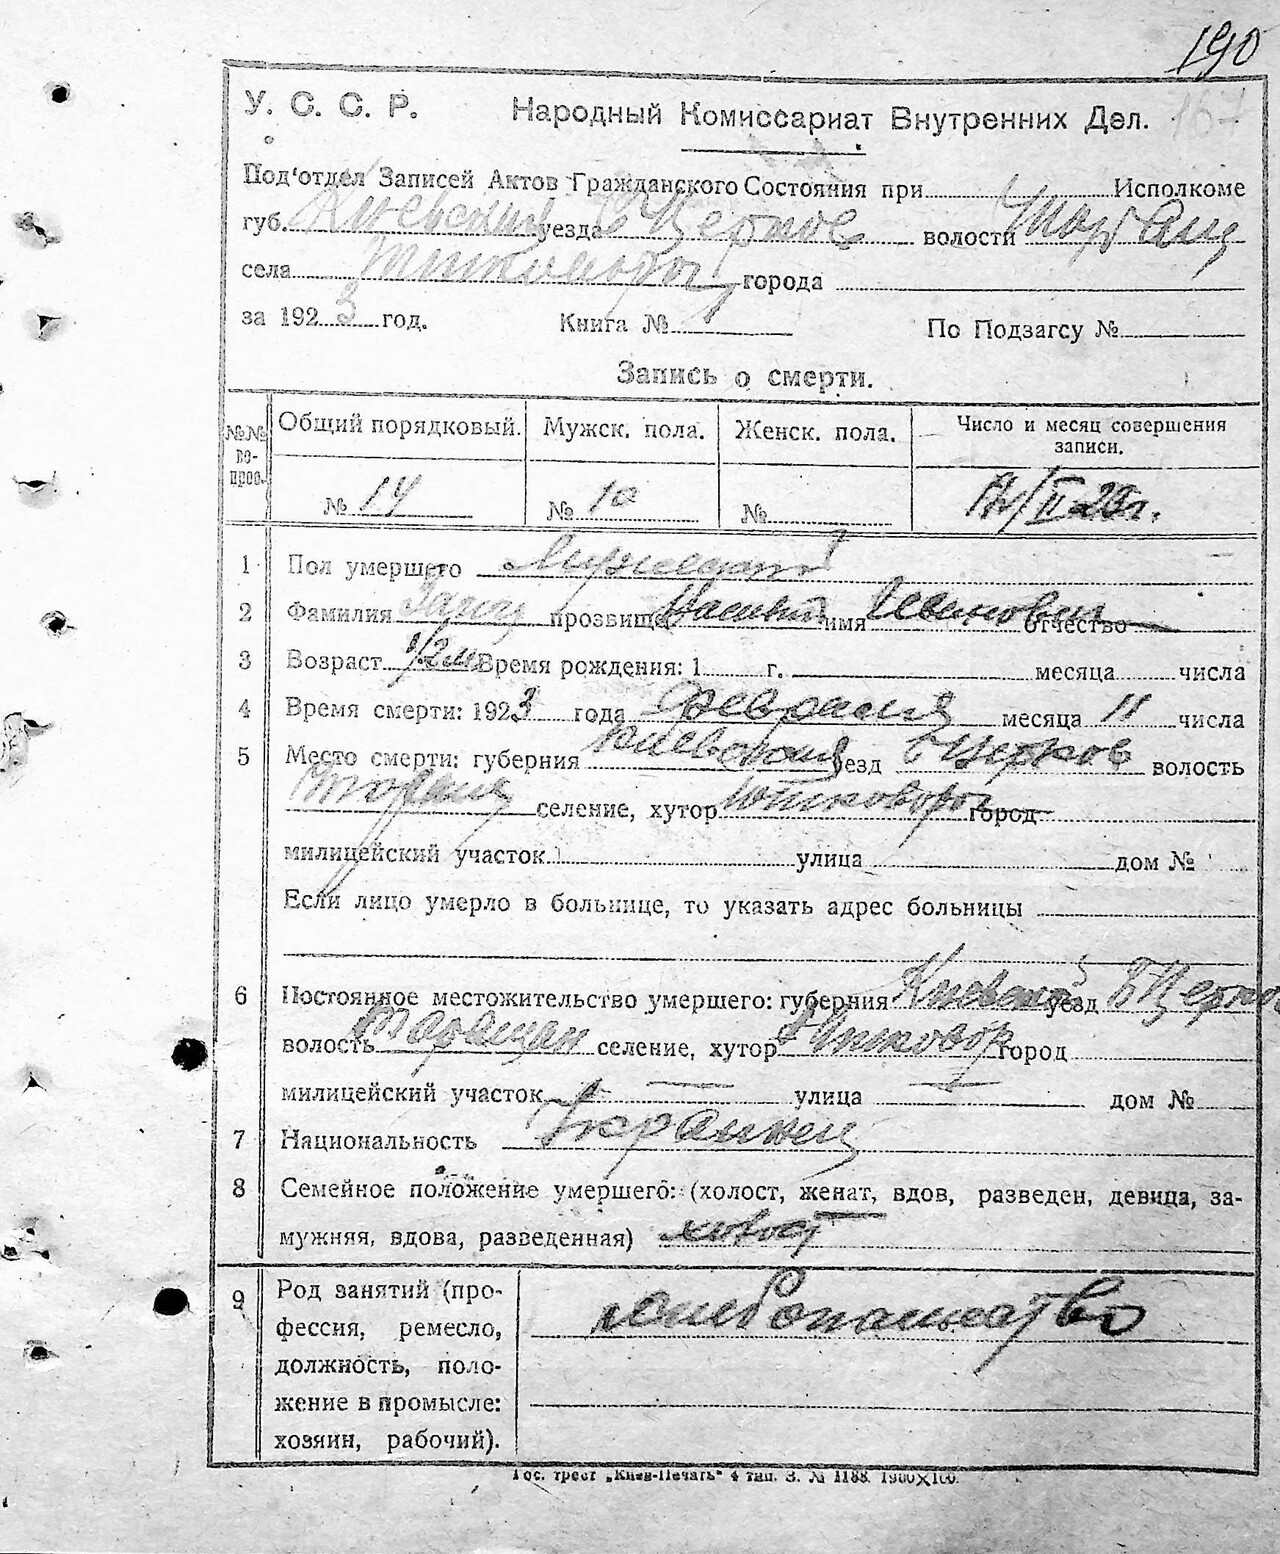 190
167
У. С. С. Р. Народный Комиссариат Внутренних Дел.
Под'отдел Записей Актов Гражданского Состояния при Исполкоме
губ. Киевский уезда Б Церков волости Таращ
села города
за 1923 год. Книга № По Подзагсу №
Запись о смерти.
№№ во- прос. Общий порядковый. Мужск. пола. Женск. пола. Число и месяц совершения записи.
№ 14 № 10 №
1 Пол умершего Мужеский
2 Фамилия прозвище имя Иванович отчество
3 Возраст 1/2 м Время рождения: 1 г. месяца числа
4 Время смерти: 1923 года Февраля месяца 11 числа
5 Место смерти: губерния Киевская уезд Б Церков волость
селение, хутор город
милицейский участок улица дом №
Если лицо умерло в больнице, то указать адрес больницы
6 Постоянное местожительство умершего: губерния Киевской уезд Б Церков
волость Таращан селение, хутор город
милицейский участок улица дом №
7 Национальность
8 Семейное положение умершего: (холост, женат, вдов, разведен, девица, за-
мужняя, вдова, разведенная) холост
9 Род занятий (про-
фессия, ремесло,
должность, поло-
жение в промысле:
хозяин, рабочий).
хлебопашество
Гос. трест „Киев-Печать" 4 тип. З. № 1188. 1900×100.